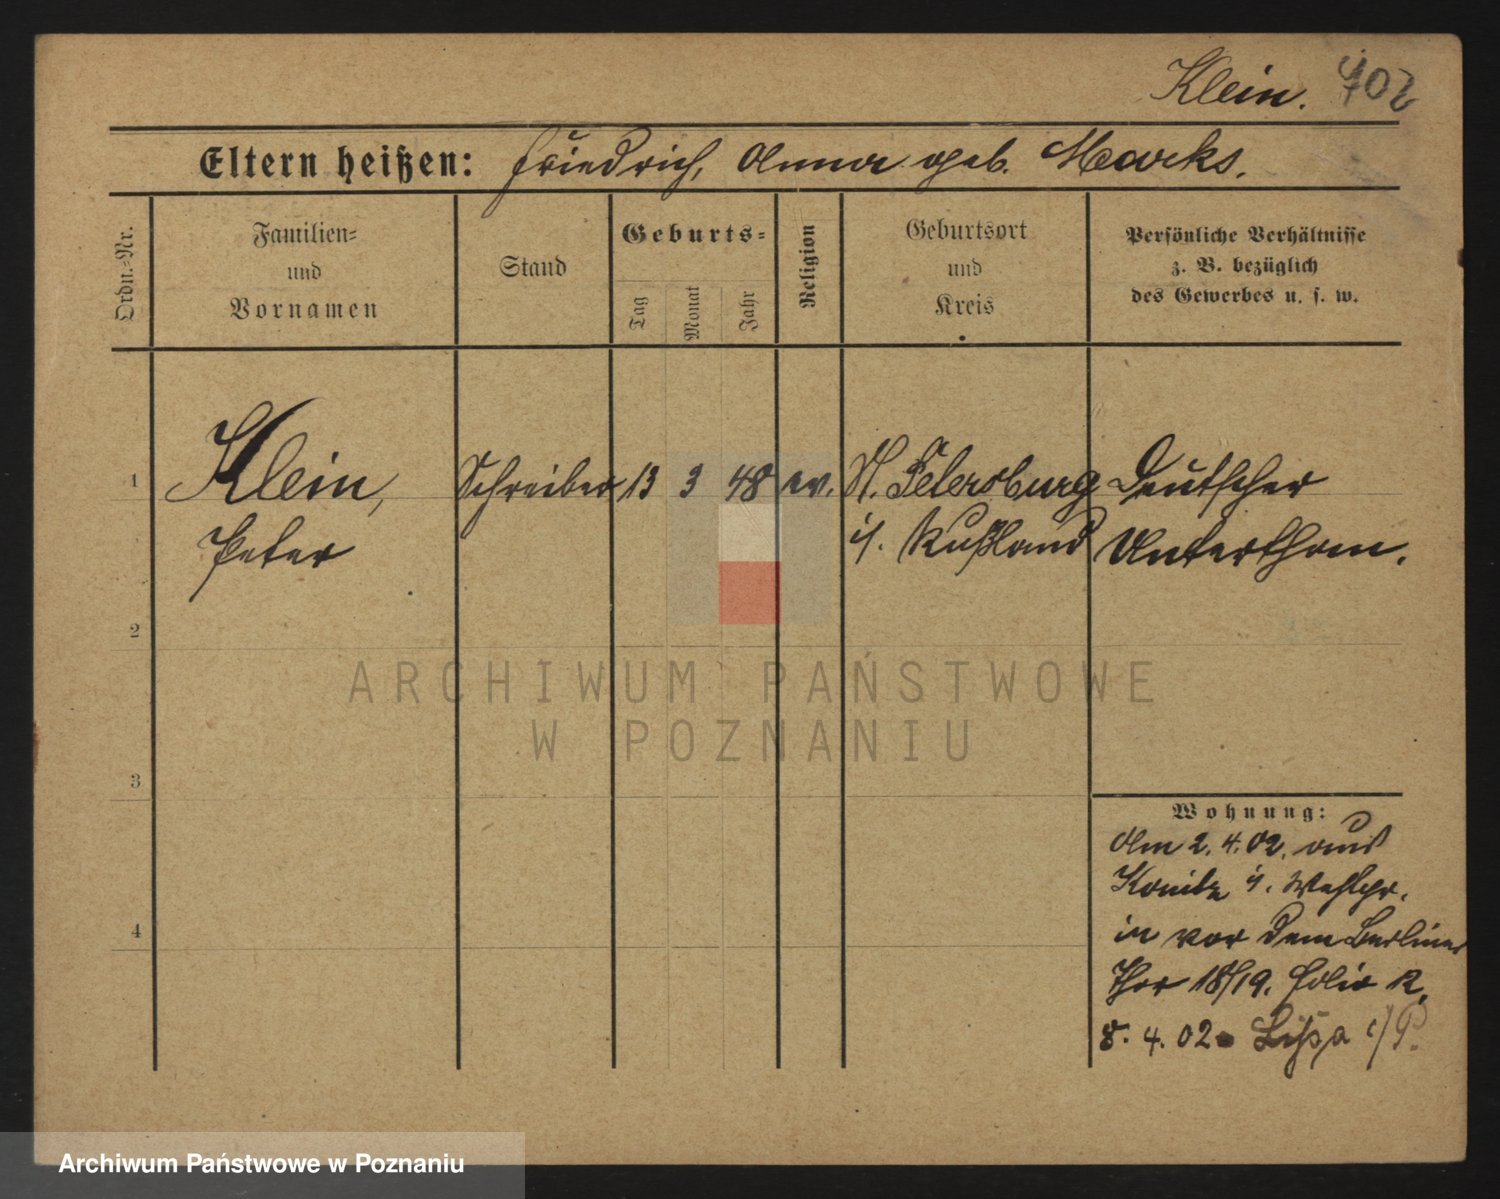 Klein. 402
Eltern heißen: Friedrich, Anna geb. Marks.
Ordn.-Nr.
Familien-
und
Vornamen
Stand
Geburts-
Tag
Monat
Jahr
Religion
Geburtsort
und
Kreis
Persönliche Verhältnisse
z. B. bezüglich
des Gewerbes u. s. w.
1 Klein, Schreiber 13 3 48 ev. St. Petersburg Deutscher
Peter i. Rußland Unterthan.
2
ARCHIWUM PAŃSTWOWE
W POZNANIU
3
Wohnung:
Am 2. 4. 02. aus
Konitz i. Westpr.
in vor dem Berliner
Thor 18/19.
4
8. 4. 02 Lissa i/P.
Archiwum Państwowe w Poznaniu